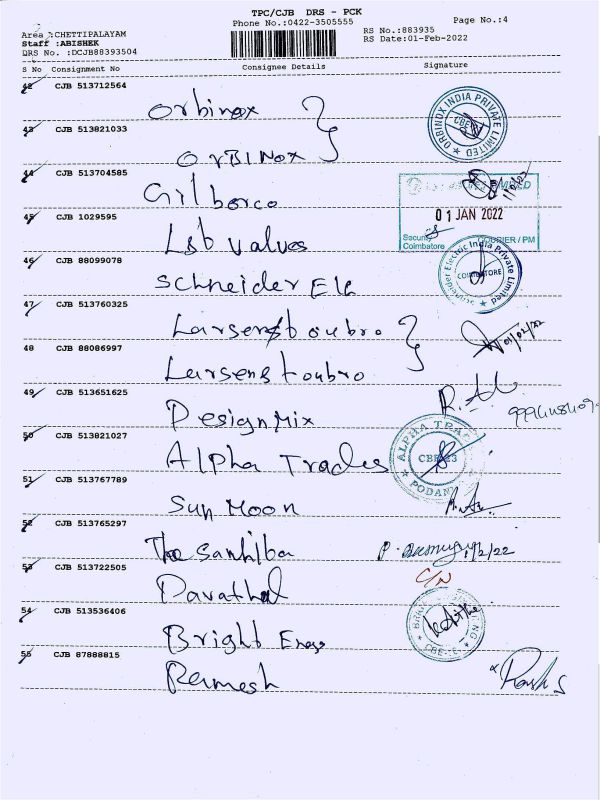 TPC/CJB DRS - PCK
Phone No.:0422-3505555
Page No.:4
Area :CHETTIPALAYAM
RS No.:883935
Staff :ABISHEK
RS Date:01-Feb-2022
DRS No. :DCJB88393504
S No Consignment No Consignee Details Signature
42 CJB 513712564
Orbinox
ORBINDX INDIA PRIVATE LIMITED
43 CJB 513821033
ORBINOX
44 CJB 513704585
Gilborco
LIMITED
01 JAN 2022
45 CJB 1029595
L&b valves
Security COURIER / PM
Coimbatore
46 CJB 88099078
Schneider Ele
Schneider Electric India Private Limited
COIMBATORE
47 CJB 513760325
Larsen & toubro
48 CJB 88086997
Larsen & toubro
49 CJB 513651625
Designmix
50 CJB 513821027
Alpha Trades
ALPHA TRA
CBE-23
PODAN
51 CJB 513767789
Sun Moon
52 CJB 513765297
The
53 CJB 513722505
C/N
54 CJB 513536406
Bright Engg
CBE
55 CJB 87888815
Ramesh